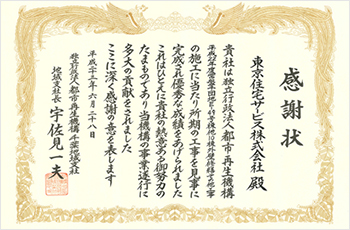 感謝状
東京住宅サービス株式会社 殿
貴社は独立行政法人都市再生機構
の施工に当たり所期の工事を見事に
完成され優秀な成績をあげられました
これはひとえに貴社の熱意ある御努力の
たまものであり当機構の事業遂行に
多大の貢献をされました
ここに深く感謝の意を表します
平成二十三年六月二十八日
独立行政法人都市再生機構千葉地域支社
地域支社長 宇佐見一夫